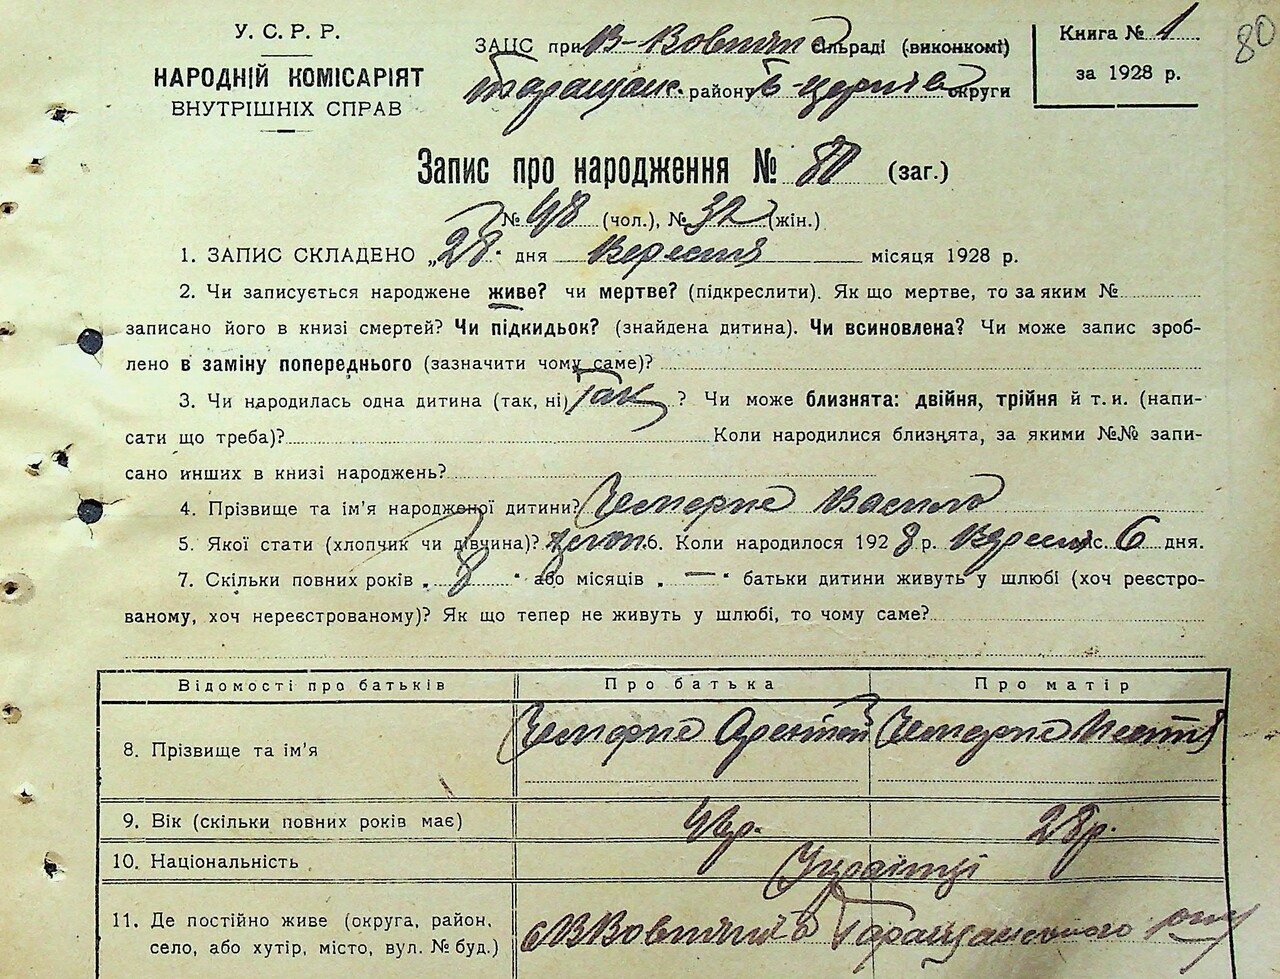 80
У. С. Р. Р.
НАРОДНІЙ КОМІСАРІЯТ
ВНУТРІШНІХ СПРАВ
ЗАЦС при В-Вовнян сільраді (виконкомі)
Таращанс. району Б-церків округи
Книга № 1
за 1928 р.
Запис про народження № 80 (заг.)
№ 48 (чол.), № 32 (жін.)
1. ЗАПИС СКЛАДЕНО „28" дня Вересня місяця 1928 р.
2. Чи записується народжене живе? чи мертве? (підкреслити). Як що мертве, то за яким №
записано його в книзі смертей? Чи підкидьок? (знайдена дитина). Чи всиновлена? Чи може запис зроб-
лено в заміну попереднього (зазначити чому саме)?
3. Чи народилась одна дитина (так, ні) Так ? Чи може близнята: двійня, трійня й т. и. (напи-
сати що треба)? Коли народилися близнята, за якими №№ запи-
сано инших в книзі народжень?
4. Прізвище та ім'я народженої дитини? Чемерис Василь
5. Якої стати (хлопчик чи дівчина)? хлоп. 6. Коли народилося 1928 р. Вересня с. 6 дня.
7. Скільки повних років „8" або місяців „—" батьки дитини живуть у шлюбі (хоч реєстро-
ваному, хоч нереєстрованому)? Як що тепер не живуть у шлюбі, то чому саме?
Відомості про батьків Про батька Про матір
8. Прізвище та ім'я Чемерис Чемерис
9. Вік (скільки повних років має) 28р.
10. Національність Українці
11. Де постійно живе (округа, район,
село, або хутір, місто, вул. № буд.) Таращанського